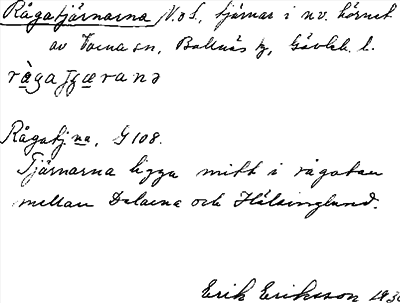 Rågatjärnarna N. o S., tjärnar i nv. hörnet
av Voxna sn, Bollnäs tg, Gävleb. l.
Rågatjna, G 108.
Tjärnarna ligga mitt i rågatan
mellan Dalarna och Hälsingland.
Erik Eriksson